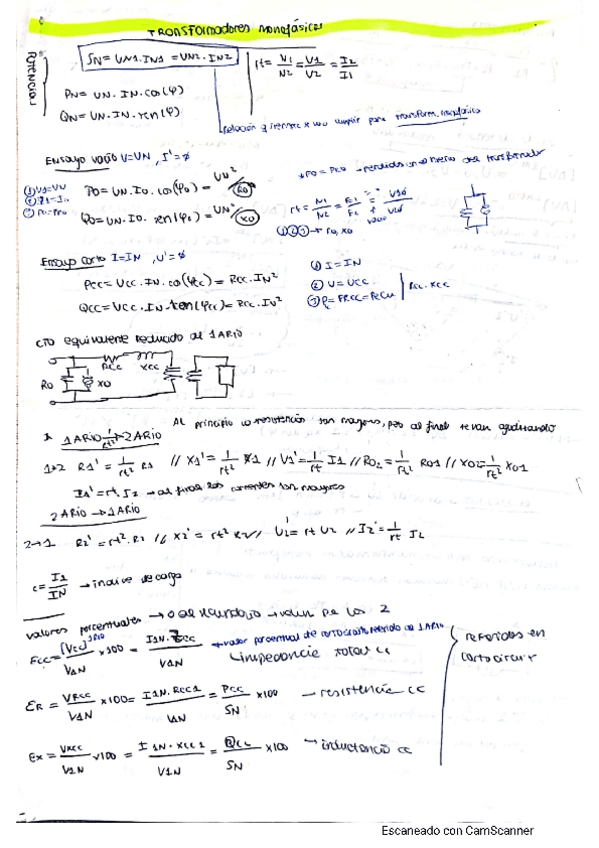 TRANSFORMADORES monofásicos
POTENCIAS
SN = UN1.IN1 = UN2.IN2
rt = N1/N2 = V1/V2 = I2/I1
PN = UN.IN.cos(φ)
QN = UN.IN.sen(φ)
cumplir para transform. monofásicos
Ensayo vacío U=UN, I'=ø
P0 = PFe → perdidas en el hierro del transformador
① V1=VN
② I1=I0
③ P0=PFe
P0 = UN.I0.cos(φ0) = UN²/R0
Q0 = UN.I0.sen(φ0) = UN²/X0
①②③ → R0, X0
Ensayo corto I=IN, U'=ø
PCC = UCC.IN.cos(φcc) = RCC.IN²
QCC = UCC.IN.sen(φcc) = RCC.IN²
① I = IN
② U = UCC
RCC, XCC
CTO equivalente reducido al 1ARIO
RCC XCC
R0 X0
Al principio la resistencias son mayores, pero al final se van
1ARIO → 2ARIO
1→2 R1' = 1/rt² R1 // X1' = 1/rt² X1 // V1' = 1/rt I1 // R02 = 1/rt² R01 // X02 = 1/rt² X01
I1' = rt.I2 → al final las corrientes son mayores
2ARIO → 1ARIO
2→1 R2' = rt².R2 // X2' = rt² X2 // U2' = rt U2 // I2' = 1/rt I2
c = I2/IN → indice de carga
valores porcentuales →
→ valor porcentual de cortocircuito referido al 1ARIO
impedancia total cc
referidas en
cortocircuito
ER = VRCC/V1N x100 = I1N.RCC1/V1N = PCC/SN x100 → resistencia cc
EX = VXCC/V1N x100 = I1N.XCC1/V1N = QCC/SN x100 → inductancia cc
Escaneado con CamScanner